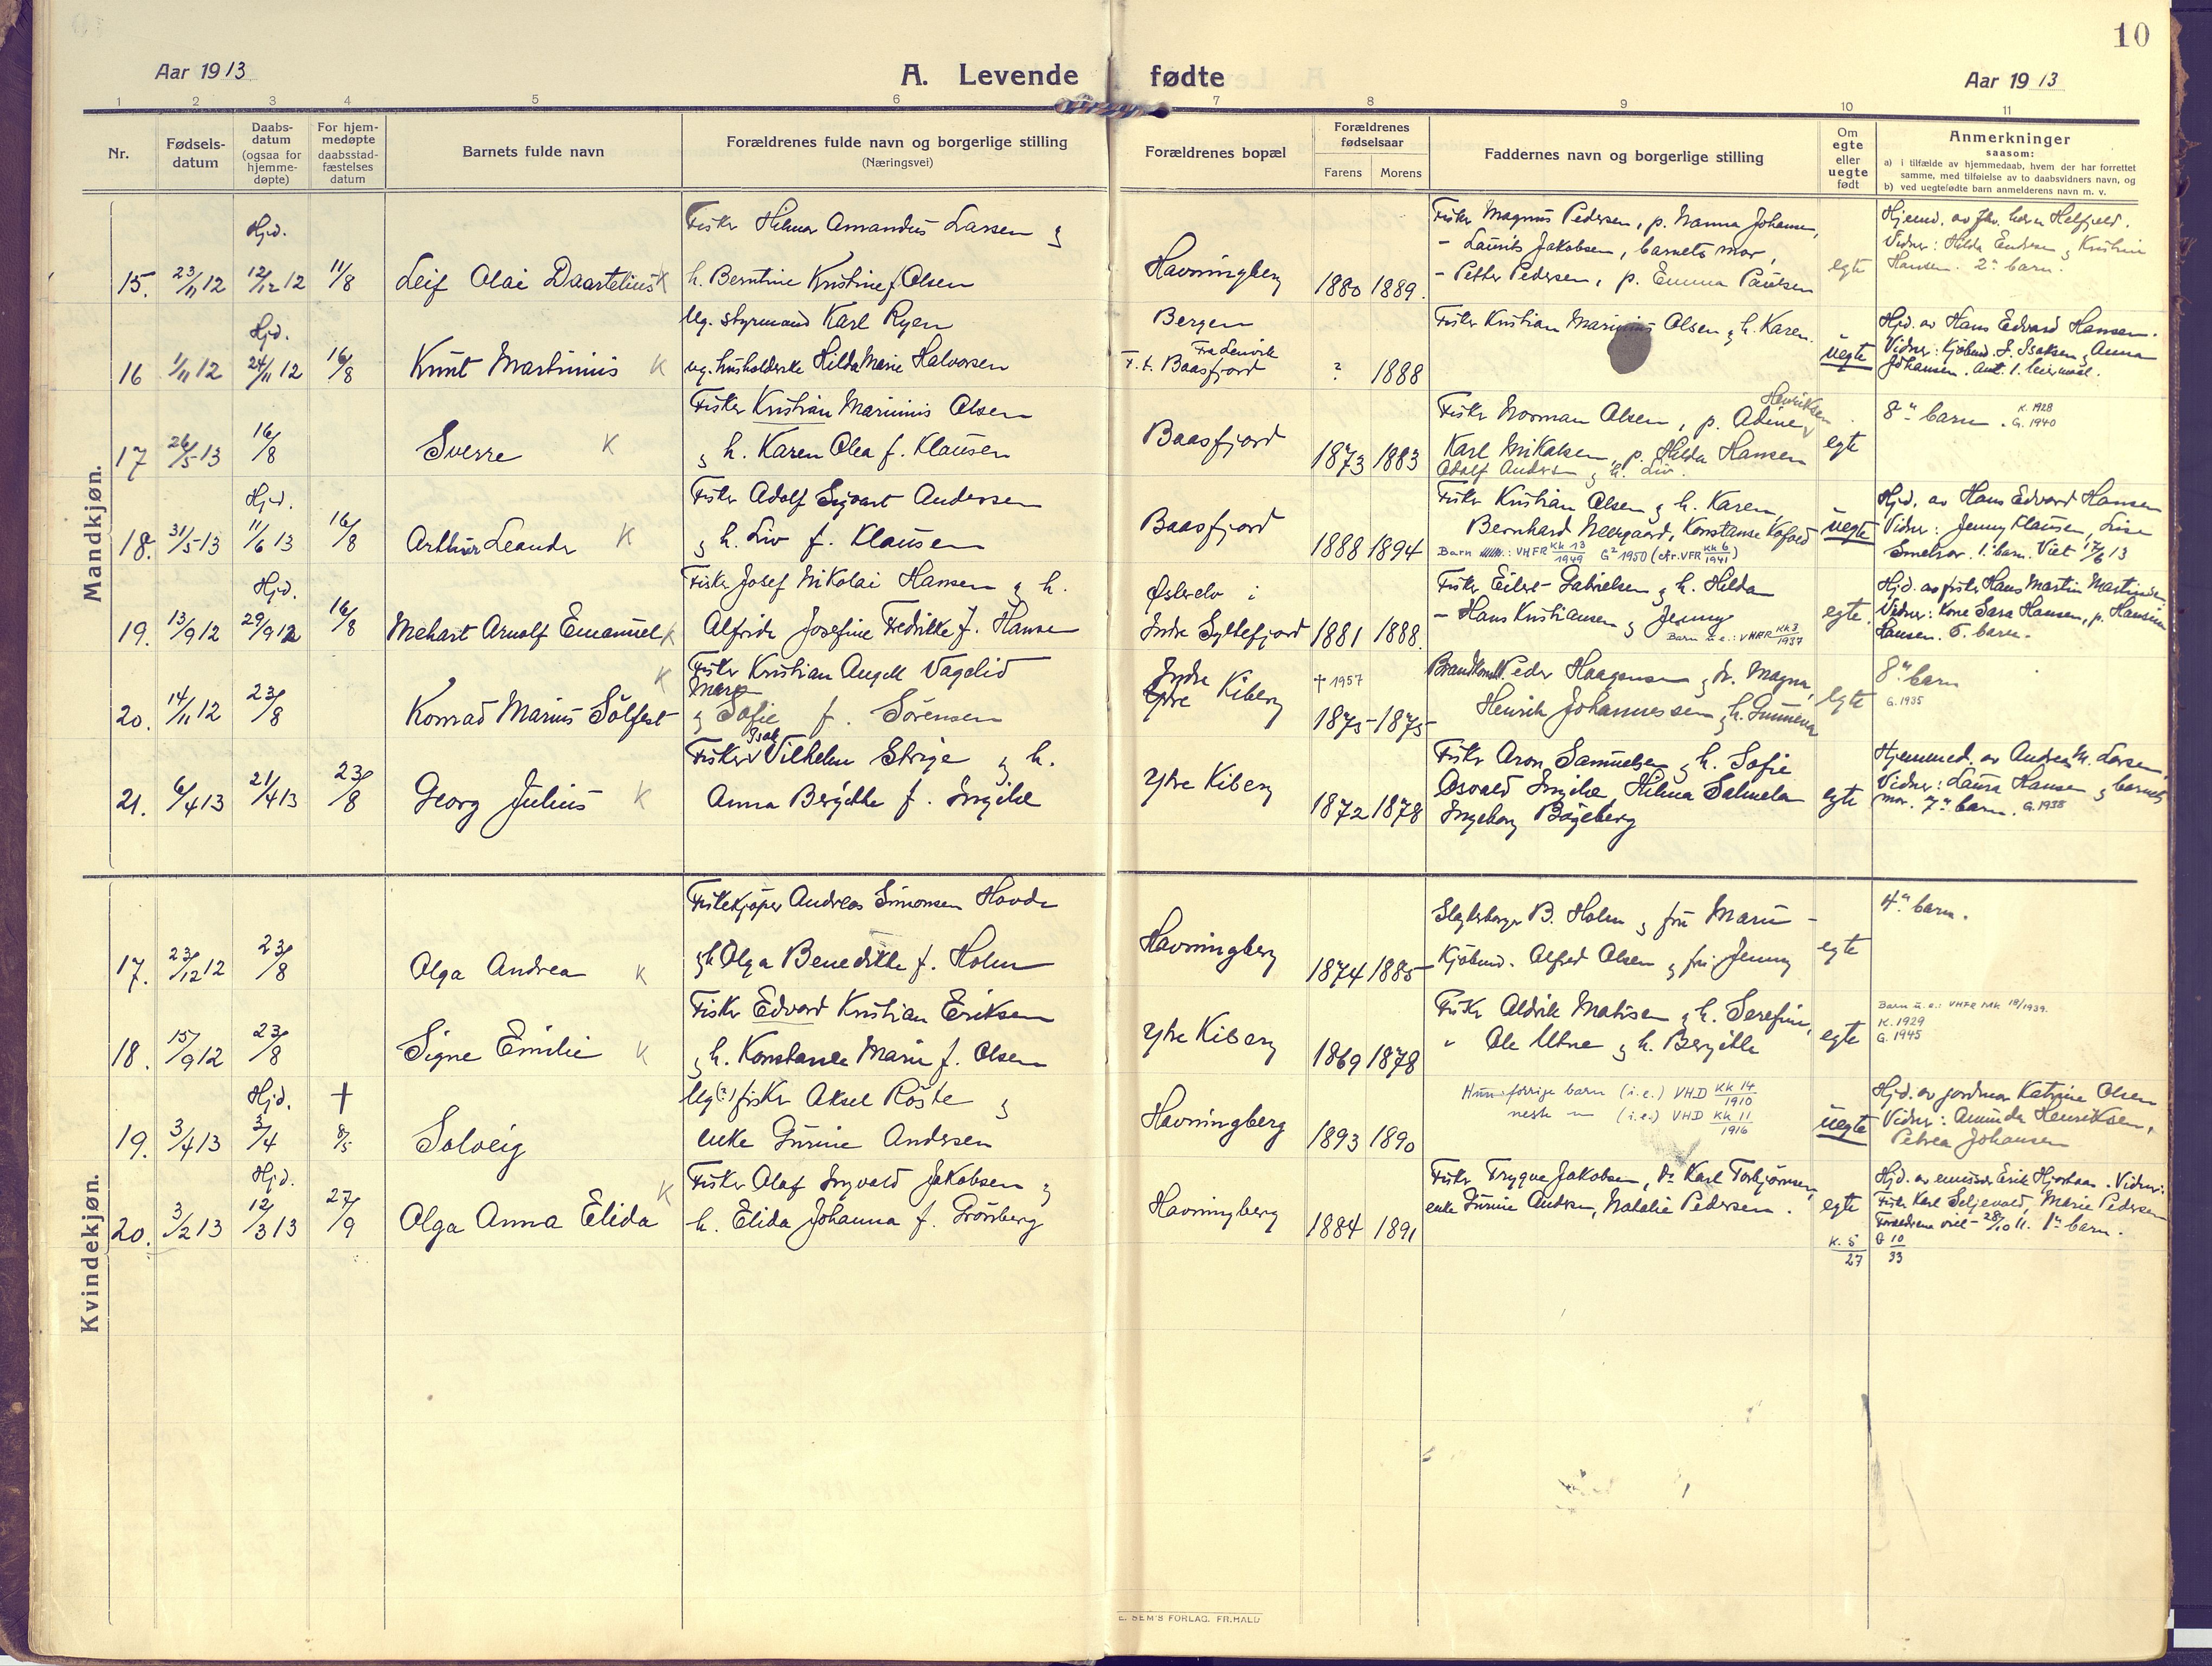 10
Aar 1913
A. Levende fødte
Aar 1913
1 2 3 4 5 6 7 8 9 10 11
Nr.
Fødsels-
datum
Daabs-
datum
(ogsaa for
hjemme-
døpte)
For hjem-
medøpte
daabsstad-
fæstelses
datum
Barnets fulde navn
Forældrenes fulde navn og borgerlige stilling
(Næringsvei)
Forældrenes bopæl
Forældrenes
fødselsaar
Farens Morens
Faddernes navn og borgerlige stilling
Om
egte
eller
uegte
født
Anmerkninger
saasom:
a) i tilfælde av hjemmedaab, hvem der har forrettet
samme, med tilføielse av to daabsvidners navn, og
b) ved uegtefødte barn anmelderens navn m. v.
Mandkjøn.
Hjd.
15. 23/11 12 12/12 12 11/8 Leif Olai Daartelius K
Fisker Hilmar Amandus Larsen og
h. Berntine Kristine f. Olsen
Havningberg 1880 1889.
Fisker Magnus Pedersen, p. Nanna Johansen,
- Laurits Jakobsen, barnets mor,
- Petter Pedersen, p. Emma Paulsen
egte
Vidner: Hilda Endresen og Kristine
Hansen. 2. barn.
Hjd.
16 1/11 12 24/11 12 16/8 Knut Martinius K
Ug. styrmand Karl Ryen
ug. husholderske Hilda Marie Halvorsen
Bergen
F. t. Baasfjord
? 1888
Fisker Kristian Marinius Olsen og h. Karen.
uegte
Hjd. av Hans Edvard Hansen.
Vidner: Kjøbmd. J. Isaksen og Anna
Johansen. Ant. 1. leiermaal.
17 26/5 13 16/8 Sverre K
Fisker Kristian Marinius Olsen
og h. Karen Olea f. Klausen
Baasfjord 1873 1883
Fisker Norman Olsen, p. Adine Henriksen
Karl Mikalsen, p. Hilda Hansen
Adolf Andersen og h. Liv.
egte
8de barn. K. 1928
G. 1940
Hjd.
18. 31/5 13 11/6 13 16/8 Arthur Leander K
Fisker Adolf Sigvart Andersen
og h. Liv f. Klausen
Baasfjord 1888 1894
Fisker Kristian Olsen og h. Karen,
Bernhard Neergaard, Konstanse Kofoed
Barn: VHFR Kk 13/1949 G² 1950 (cfr. VFR Kk 6/1941)
uegte
Hjd. av Hans Edvard Hansen
Vidner: Jenny Klausen, Lise
Smelror. 1. barn. Viet 17/6 13
Hjd.
19. 13/9 12 29/9 12 16/8 Mehart Arnolf Emanuel K
Fisker Josef Nikolai Hansen og h.
Alfride Josefine Fedrikke f. Hansen
Østerelv i
Indre Syltefjord 1881 1888.
Fisker Eilert Gabrielsen og h. Hilda
- Hans Kristiansen og Jenny
Barn u.e.: VHFR Kk 3/1937
egte
Hjd. av fisker Hans Martin Martinsen
Vidner: Kone Sara Hansen, p. Hansine
Hansen. 6. barn.
20. 14/11 12 23/8 Konrad Marius Sölfest K
Fisker Kristian Angell Vagelid
og Marg Sofie f. Sörensen
Indre
Ytre Kiberg † 1957
1875 1875
Peder Haagensen og fr. Magna,
Henrik Johannessen og h. Gunneva
egte
8de barn
G. 1935
21. 6/4 13 21/4 13 23/8 Georg Julius K
Fisker Isak Vilhelm Strige og h.
Anna Bergitte f. Ingilæ
Ytre Kiberg 1872 1878
Fisker Aron Samuelsen og h. Sofie
Osvald Ingilæ, Hilma Salmela
Ingeborg Bögeberg
egte
Hjemmed. av Andrea M. Larsen,
Vidner: Laura Hansen og barnets
mor. 7de barn. G. 1938
Kvindekjøn.
17. 23/12 12 23/8 Olga Andrea K
Fiskekjøper Andreas Simonsen Hovde
og h. Olga Benedikte f. Holm
Havningberg 1874 1885
B. Holm og fru Marie -
Kjøbmd. Alfred Olsen og fru Jenny
egte
4de barn.
18. 15/9 12 23/8 Signe Emilie K
Fisker Edvard Kristian Eriksen
og h. Konstanse Marie f. Olsen
Ytre Kiberg 1869 1878
Fisker Aldrik Matisen og h. Serefine,
" Ole Utne og h. Bergitte
egte
Barn u.e.: VHFR Mk 18/1939.
K. 1929
G. 1945
Hjd. †
19. 3/4 13 3/4 8/5 Solveig
Ug(?) fisker Aksel Röste og
enke Gurine Andersen
Havningberg 1893 1890
Hun: forrige barn (i.e.) VHD Kk 14/1910
neste - (i.e.) VHD Kk 11/1916
uegte
Hjd. av jordmor Katrine Olsen
Vidner: Amunda Henriksen,
Petrea Johansen
Hjd.
20. 3/2 13 12/3 13 27/9 Olga Anna Elida K
Fisker Olaf Ingvald Jakobsen og
h. Elida Johanna f. Grönberg
Havningberg 1884 1891
Fisker Trygve Jakobsen, do Karl Torbjørnsen,
enke Gurine Andersen, Natalie Pedersen.
egte
Hjd. av emissær Erik Hjorthaas. Vidner:
Fisker Karl Seljevold, Marie Pedersen
Forældrene viet 28/10 11. 1ste barn.
K. 5/27 G 10/33
E. SEM'S FORLAG. FR.HALD